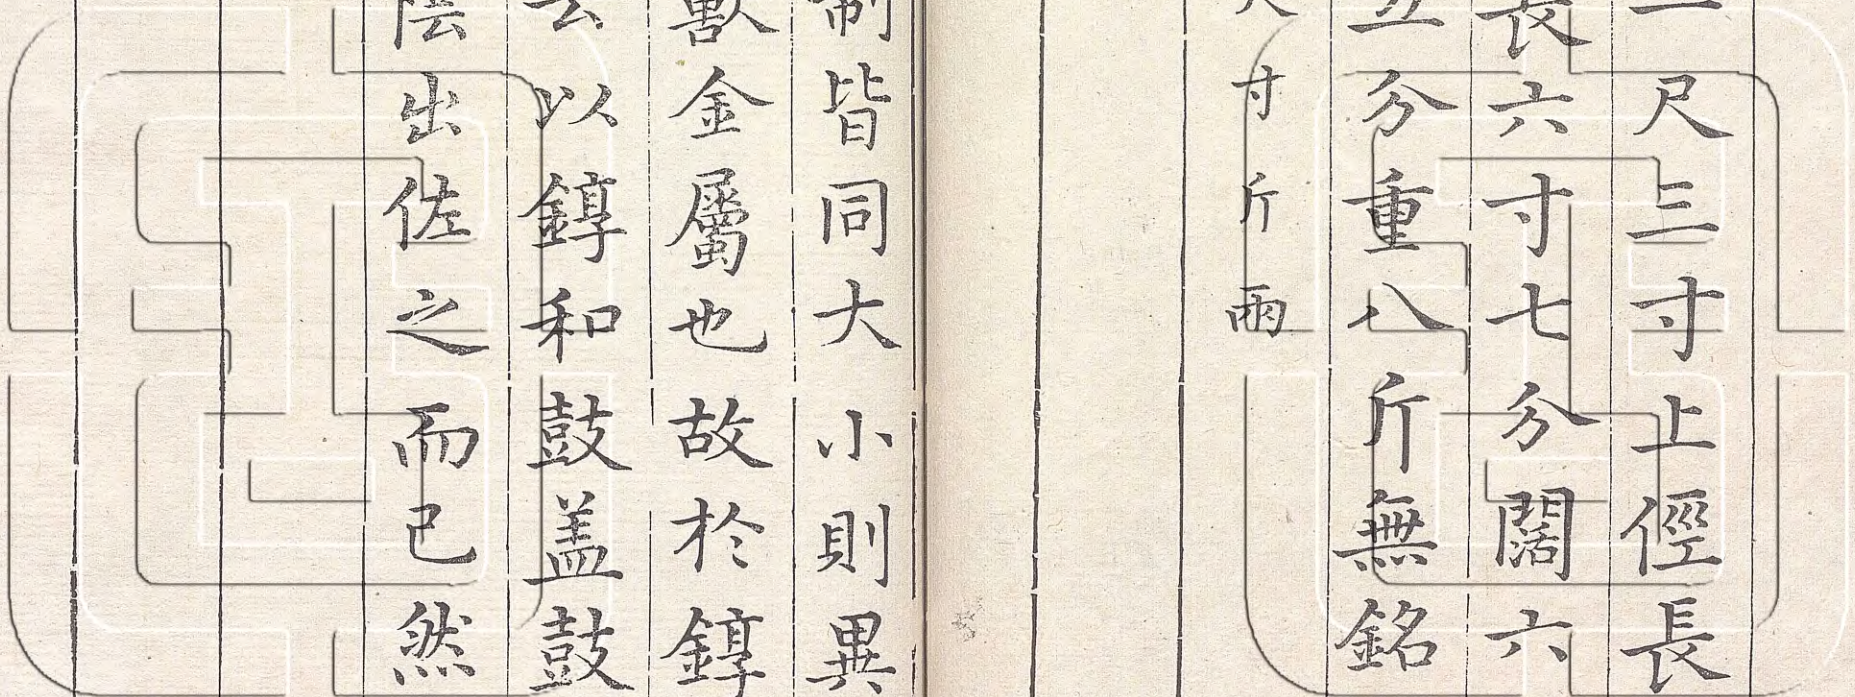 尺三寸上徑長
長六寸七分闊六
五分重八斤無銘
寸斤兩
制皆同大小則異
獸金屬也故於錞
以錞和鼓盖鼓
陰出佐之而已然